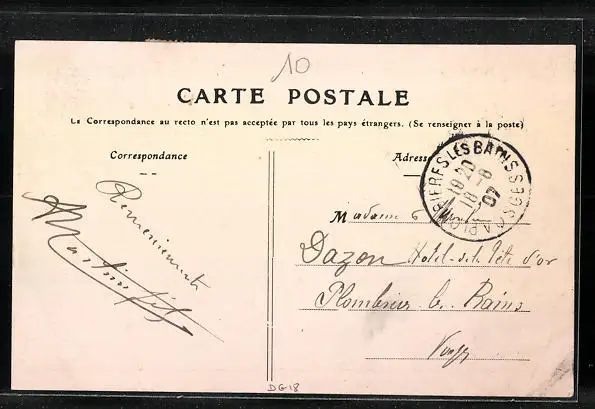 10
CARTE POSTALE
La Correspondance au recto n'est pas acceptée par tous les pays étrangers. (Se renseigner à la poste)
Correspondance
Adresse
PLOMBIERES LES BAINS VOSGES
18 20
18 - 8
07
Remerciements
Madame
Dazon Hotel de la Tête d'or
Plombières les Bains
Vosges
DG18